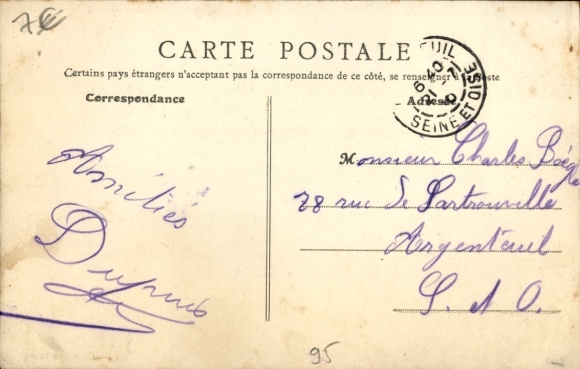 7€
CARTE POSTALE
Certains pays étrangers n'acceptant pas la correspondance de ce côté, se renseigner à la poste
Correspondance
Adresse
UIL
SEINE ET OISE
Amitiés
Dupuis
Monsieur Charles
78 rue de Sartrouville
Argenteuil
S. et O.
95